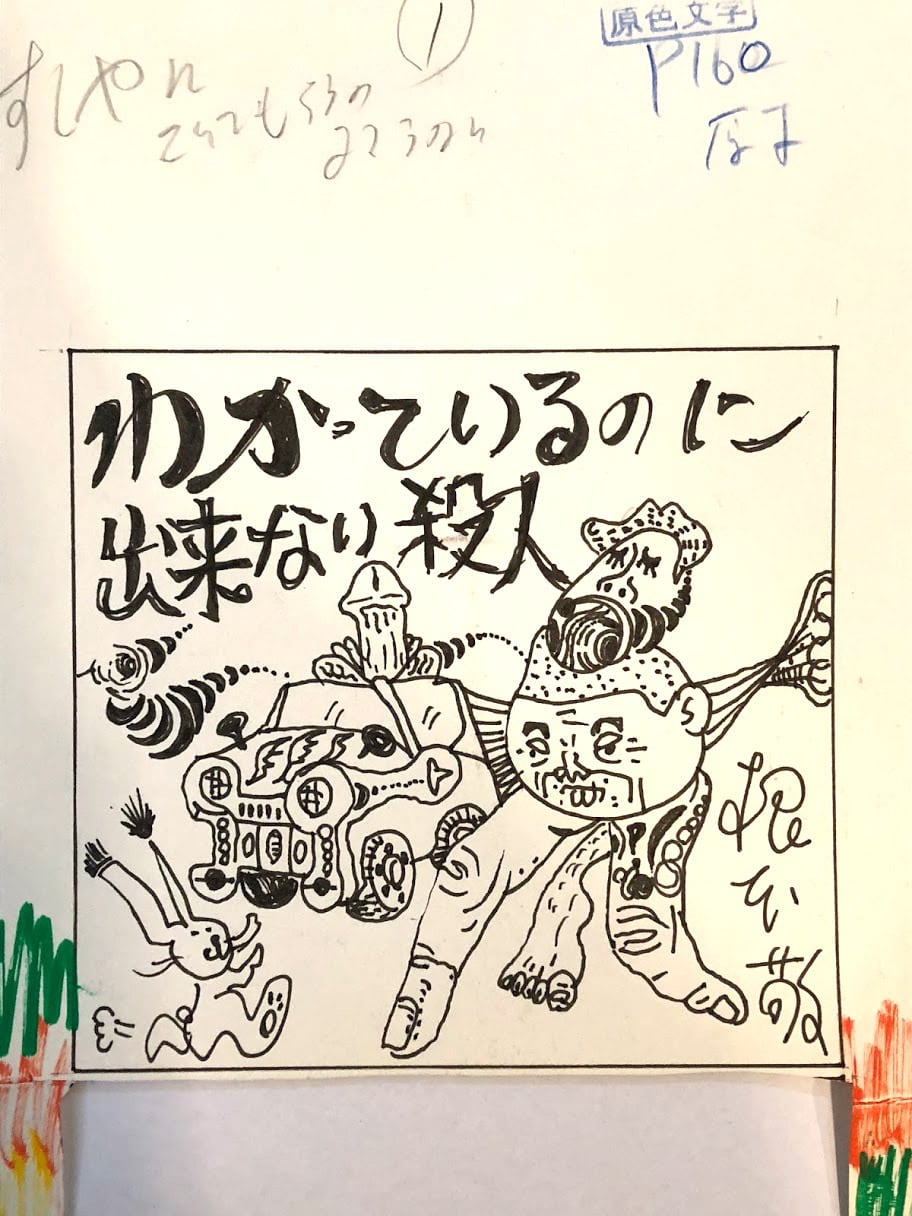 ①
原色文字
P160
すしやに
わかっているのに
出来ない殺人
根本敬